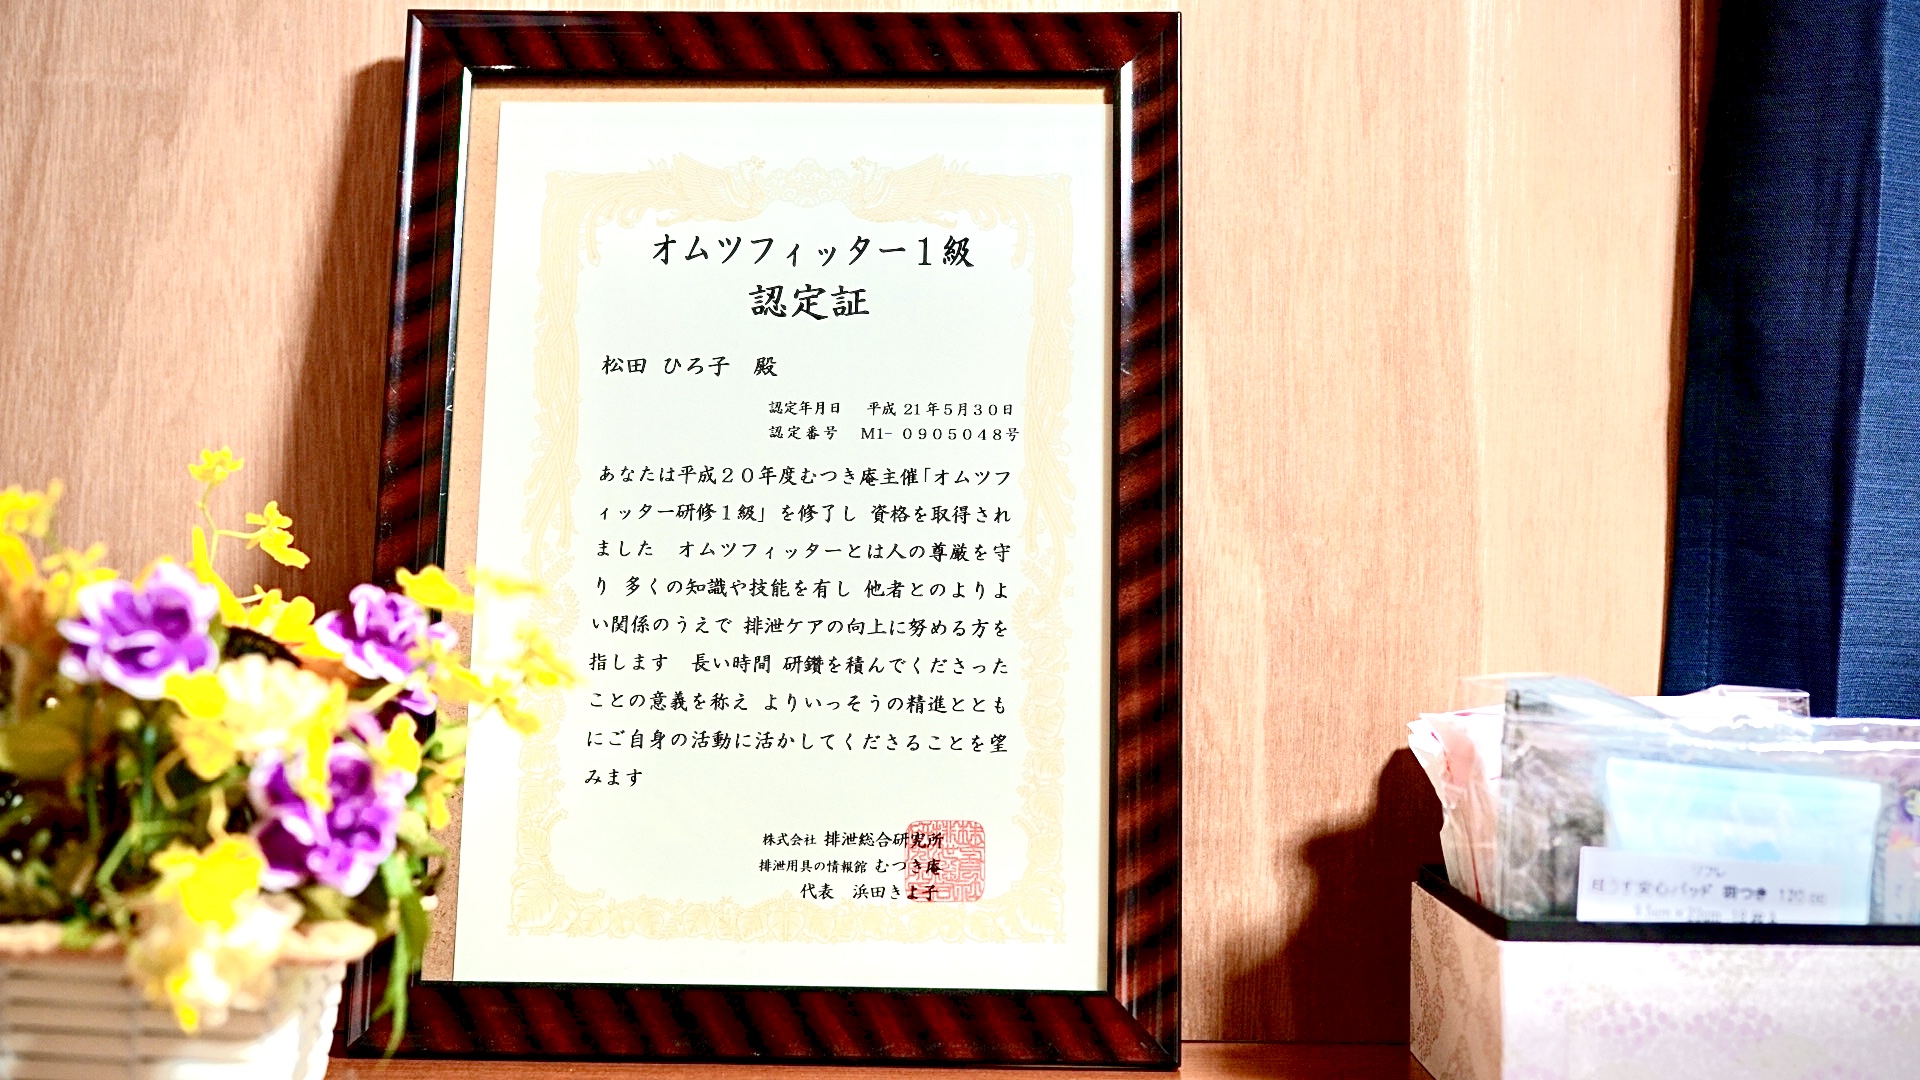 オムツフィッター１級
認定証
松田 ひろ子 殿
認定年月日 平成 21年5月30日
認定番号 M1- 0905048号
あなたは平成２０年度むつき庵主催「オムツフ
ィッター研修１級」を修了し 資格を取得され
ました オムツフィッターとは人の尊厳を守
り 多くの知識や技能を有し 他者とのよりよ
い関係のうえで 排泄ケアの向上に努める方を
指します 長い時間 研鑽を積んでくださった
ことの意義を称え よりいっそうの精進ととも
にご自身の活動に活かしてくださることを望
みます
株式会社 排泄総合研究所
排泄用具の情報館 むつき庵
代表 浜田きよ子
リフレ
安心パッド 羽つき 120